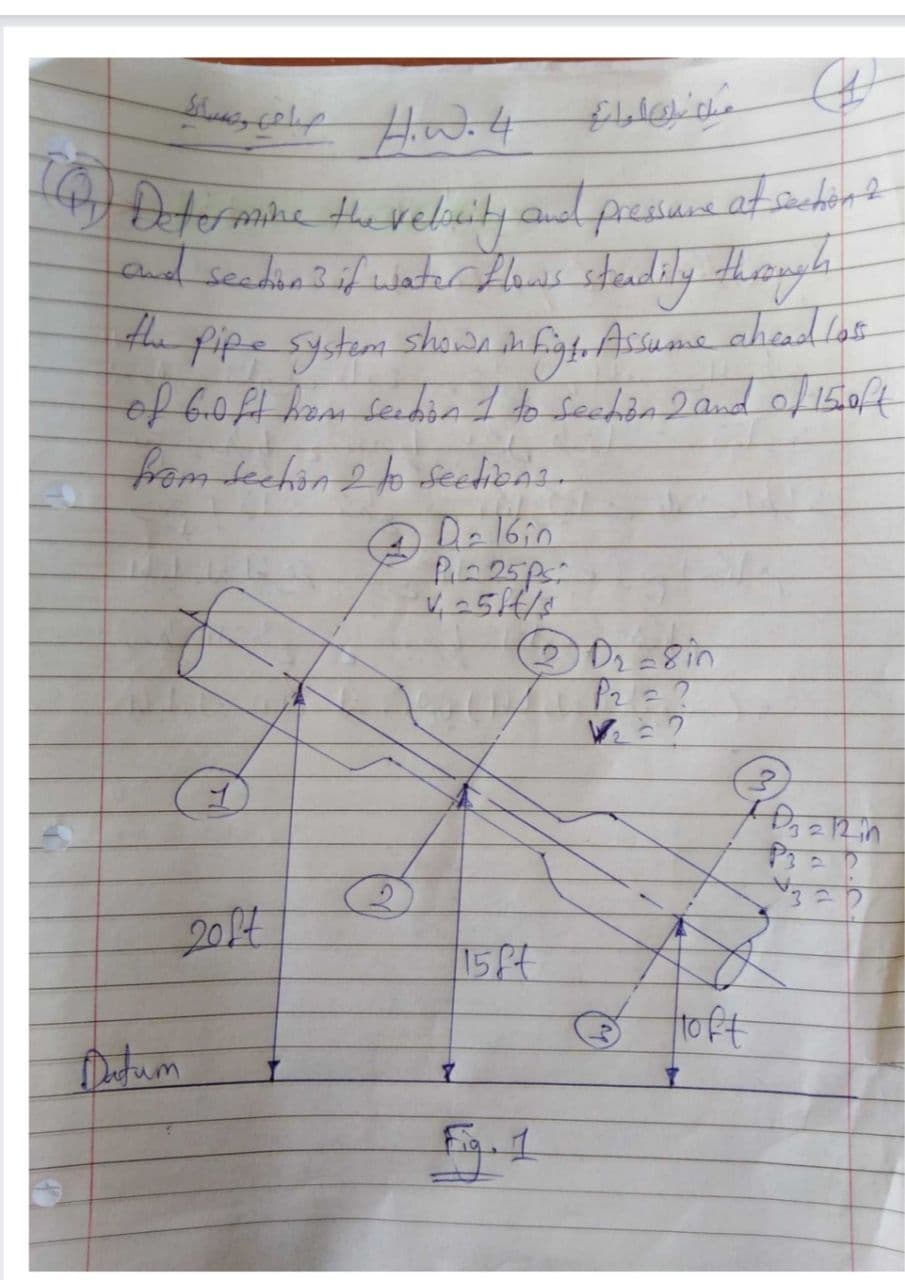 H.W.4
1
Q1 Determine the velocity and pressure at section 2
and section 3 if water flows steadily through
the pipe system shown in fig1. Assume ahead loss
of 6.0 ft from section 1 to section 2 and of 15.0ft
from section 2 to section3.
1 D1=16in
P1=25psi
V1=5ft/s
2 D2=8in
P2=?
V2=?
3
D3=12in
P3=?
V3=?
1
2
20ft
15ft
3
10ft
Datum
Fig. 1